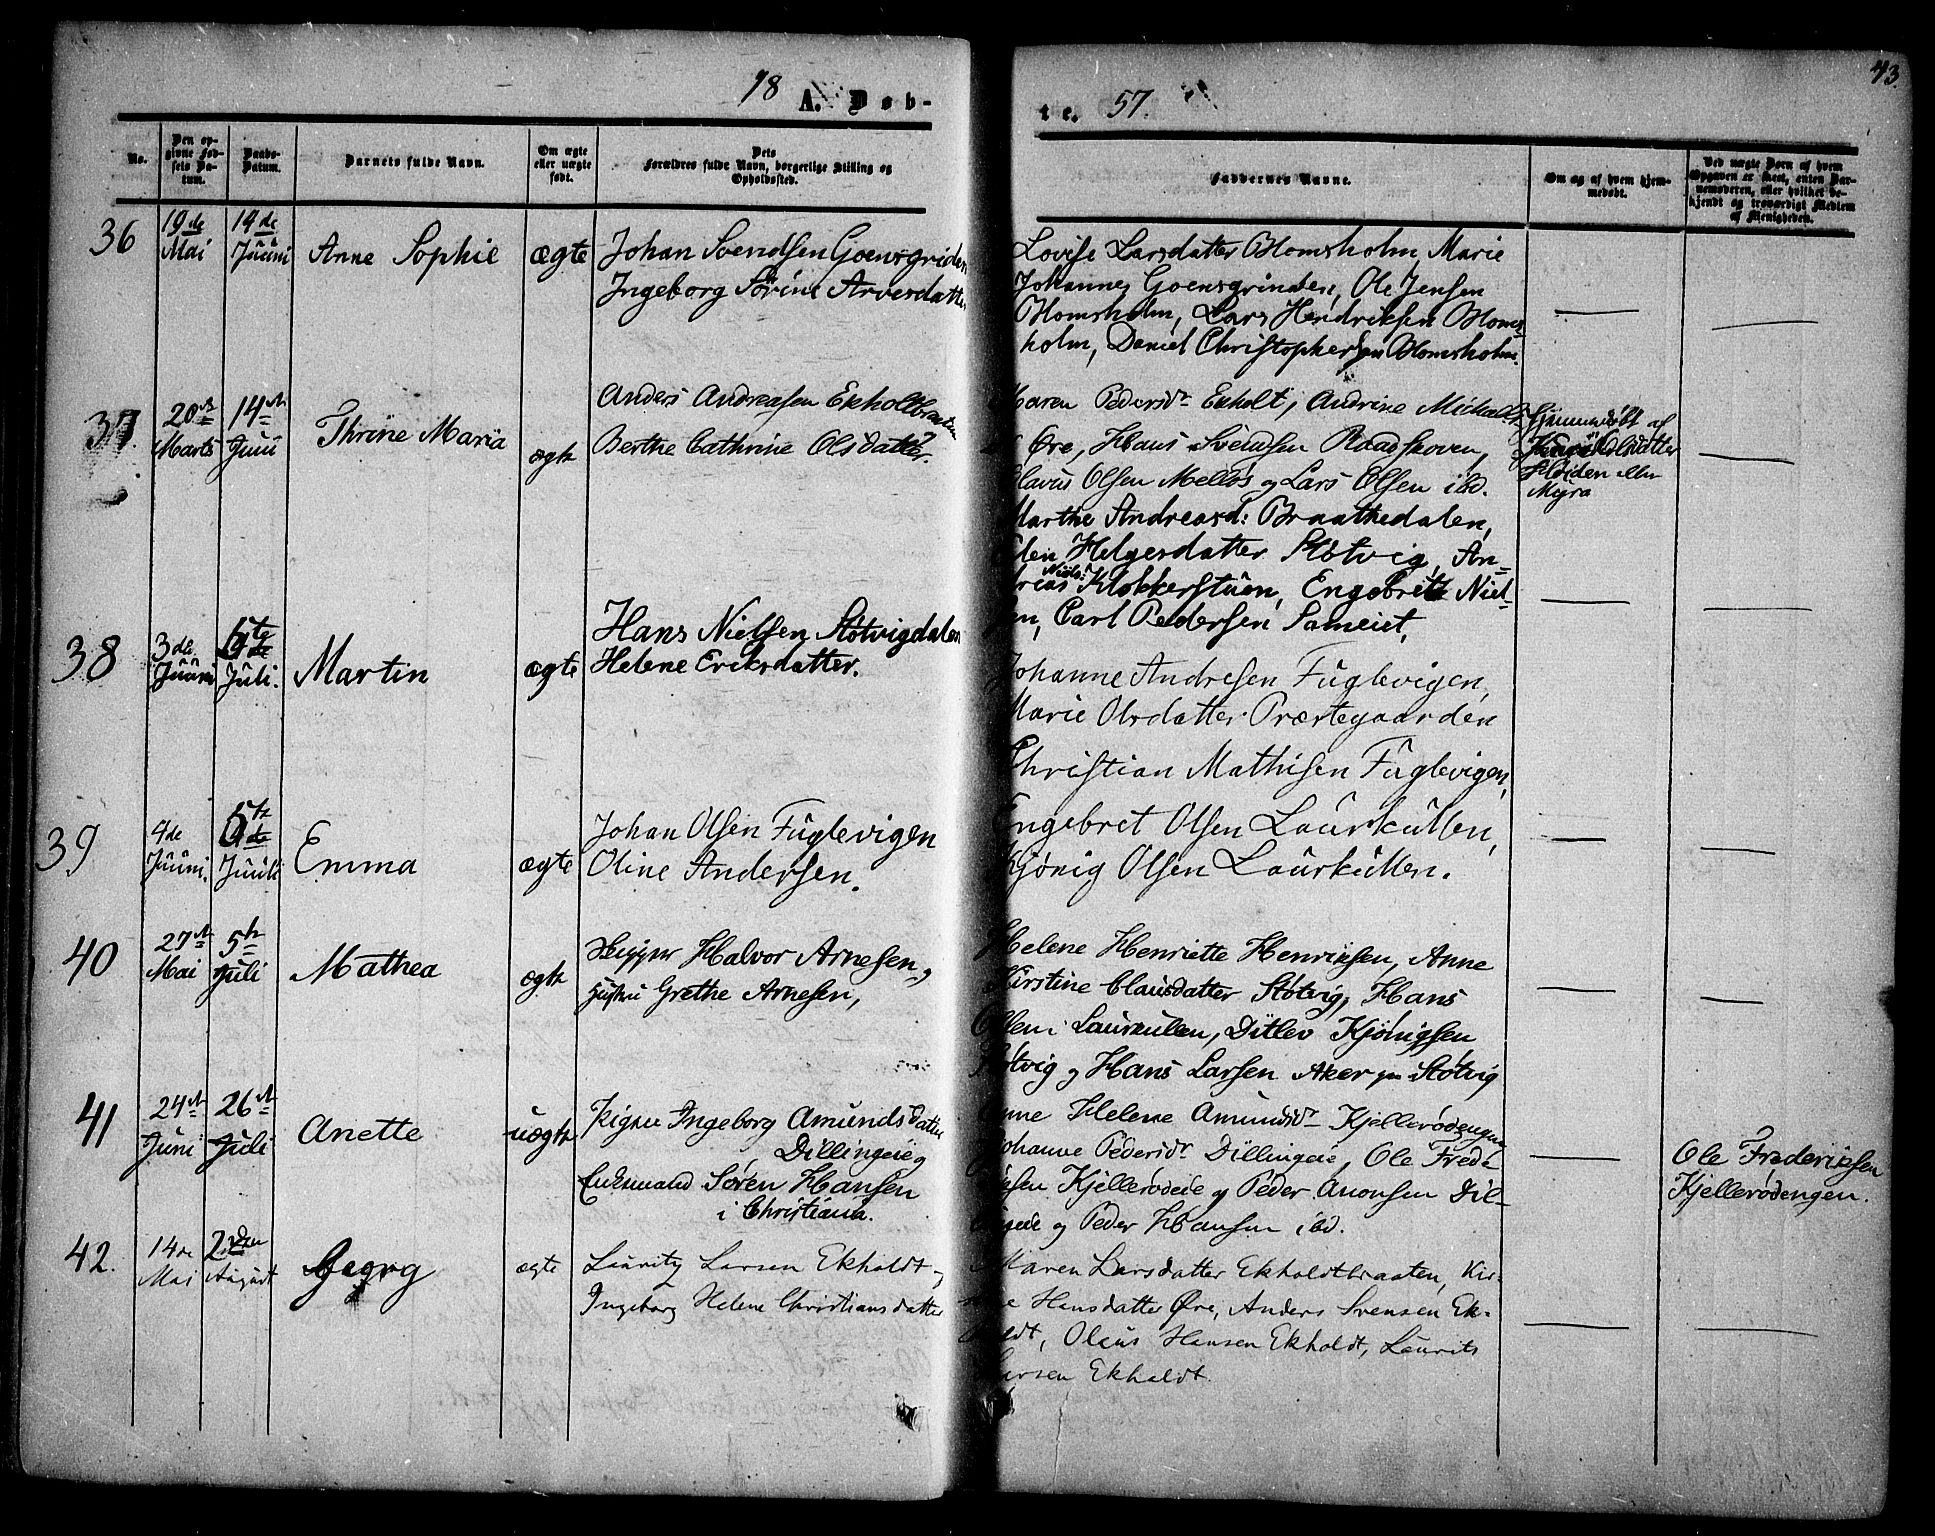 43.
18 A. Døb-
te. 57.
No.
Den op-
givne Fød-
sels Da-
tum.
Daabs-
Datum.
Barnets fulde Navn.
Om ægte
eller uægte
født.
Dets
Forældres fulde Navn, borgerlige Stilling og
Opholdssted.
Faddernes Navne.
Om og af hvem hjem-
medøbt.
Ved uægte Børn af hvem
Opgaven er skeet, enten Bar-
nemoderen, eller hvilket be-
kjendt og troværdigt Medlem
af Menigheden.
36 19de Mai 14de Juuni Anne Sophie ægte
Johan Svendsen Goensgrinden
Ingeborg Sørine Arvesdatter
Lovise Larsdatter Homsholm, Marie
Johannes Goensgrinden, Ole Jensen
Homsholm, Lars Hendriksen Homs-
holm, Daniel Christophersen Homsholm.
37. 20de Marts 14de Juni Thrine Maria ægte
Anders Andreasen Ekholtbraaten
Berthe Cathrine Olsdatter.
Maren Pedersdr Ekholt, Andrine Michaels
Øre, Hans Svendsen Raadskoven,
Olavus Olsen Melløs og Lars Olsen ibd.
Hjemmedøbt af
Olsdatter
eller
Myra
38 3de Juuni 5te Juli. Martin ægte
Hans Nielsen Støtvigdalen
Helene Eriksdatter.
Marthe Andreasd: Braathedalen,
Elen Helgesdatter Støtvig, An-
dreas Niels: Klokkerstuen, Engebret Niel-
sen, Carl Pedersen Sameiet,
39 4de Juuni. 5te Juuli Emma ægte
Johan Olsen Fuglevigen
Oline Andersen.
Johanne Andresen Fuglevigen,
Marie Olsdatter Præstegaarden
Christian Mathisen Fuglevigen,
Engebret Olsen Laurkullen,
Kjønig Olsen Laurkullen.
40 27de Mai 5te Juli Mathea ægte
Skipper Halvor Arnesen og
Hustru Grethe Arnesen,
Helene Henriette Henriksen, Anne
Kirstine Clausdatter Støtvig, Hans
Olsen Laurkullen, Ditlev Kjønigsen
Støtvig og Hans Larsen Aker paa Støtvig
41 24de Juni 26de Juli Anette uægte
Pigen Ingeborg Amunds Datter
Dillingeie og
Enkemand Søren Hansen
i Christiania.
Anne Helene Amundsdr Kjellerødengen
Johanne Pedersdr Dillingeie, Ole Frede-
riksen Kjellerødeie og Peder Amonsen Dil-
lingeie og Peder Hansen ibd.
Ole Frederiksen
Kjellerødengen.
42. 14de Mai 2den August Georg ægte
Lauritz Larsen Ekholdt og
Ingeborg Helene Christiansdatter
Maren Larsdatter Ekholdtbraaten, Kir-
stine Hansdatter Øre, Anders Svensen Ek-
holdt, Olaus Hansen Ekholdt, Laurits
Larsen Ekholdt.